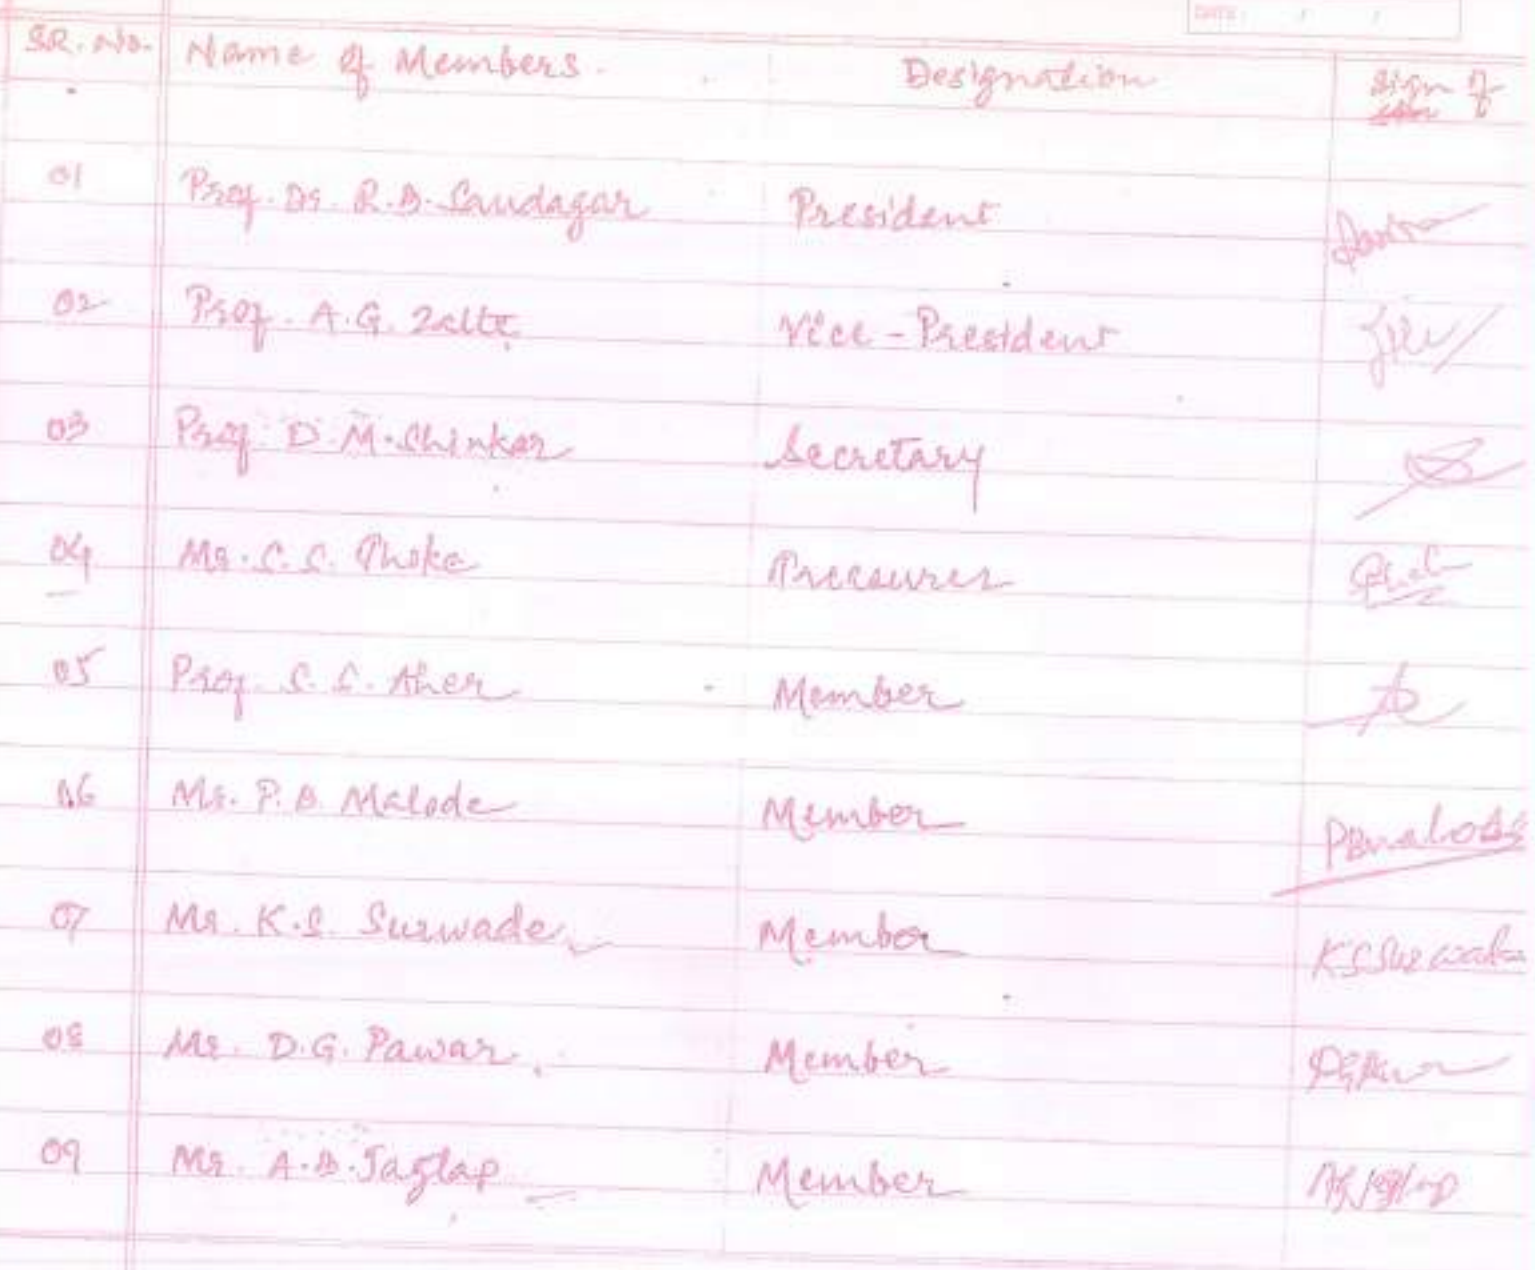 DATE: / /
SR. No. Name of Members. Designation Sign of
01 Prof. Dr. R.B. Saudagar President
02 Prof. A.G. Zalte Vice-President
03 Prof. D. M. Shinkar Secretary
04 Mr. S. S. Thoke Treasurer
05 Prof. S. S. Aher Member
06 Mr. P. B. Malode Member PBmalode
07 Mr. K.S. Surwade Member KSSurwade
08 Mr. D.G. Pawar Member
09 Mr. A.B. Jagtap Member